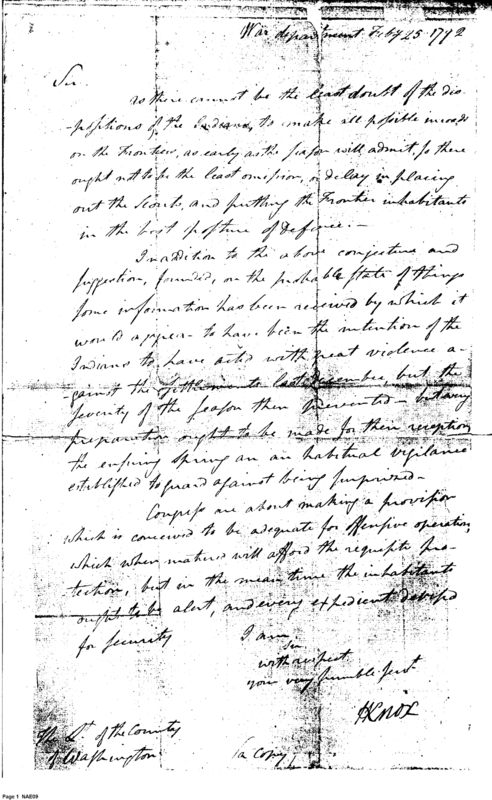 War department Feby 25 1792
Sir
As there cannot be the least doubt of the dis
-positions of the Indians, to make all possible inroads
on the Frontiers, as early as the season will admit, so there
ought not to be the least omission, or delay in placing
out the Scouts, and putting the Frontier inhabitants
in the best posture of Defence.—
In addition to the above conjecture and
suggestion, founded, on the probable State of things
some information has been received by which it
would appear to have been the intention of the
Indians to have acted with great violence a-
-gainst the Settlements last December, but the
severity of the season then prevented— but every
preparation ought to be made for their reception
the ensuing Spring an an habitual vigilance
established to guard against being surprized—
Congress are about making a provision
which is conceived to be adequate for offensive operation,
which when matured will afford the requisite pro-
-tection, but in the mean time the inhabitants
ought to be alert, and every expedient devised
for security
I am
Sir
with respect
your very humble servt
HKnox
The Lt of the County
of Washington
(a copy)
Page 1 NAE09